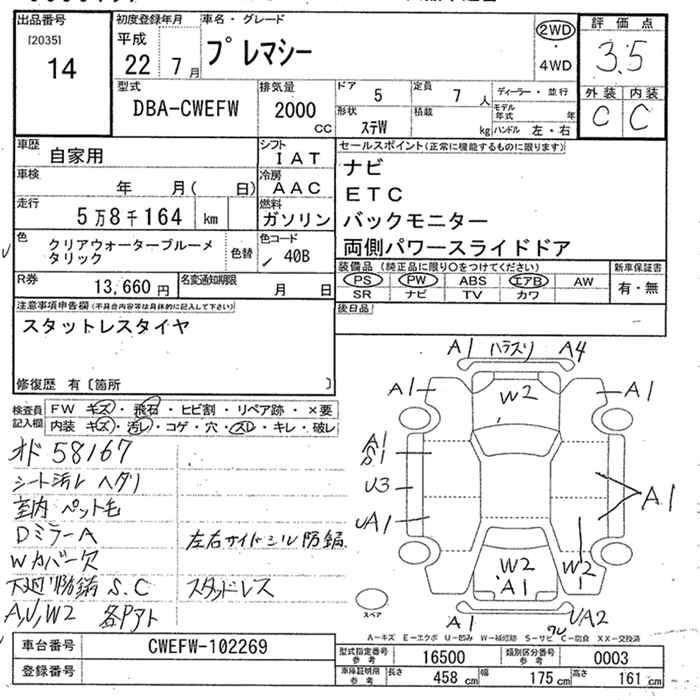 出品番号
[2035]
14
初度登録年月
平成
22 7月
車名・グレード
プレマシー
2WD
・
4WD
評価点
3.5
外装 内装
C C
型式
DBA-CWEFW
排気量
2000
CC
ドア 5
定員 7 人
形状 ステW
積載 kg
ディーラー・並行
モデル年式 年
ハンドル 左・右
車歴 自家用
シフト IAT
車検 年 月( 日)
冷房 AAC
走行 5万8千164 km
燃料 ガソリン
色 クリアウォーターブルーメタリック
色替
色コード 40B
R券 13,660 円
名変通知期限 月 日
セールスポイント(正常に機能するものに限ります)
ナビ
ETC
バックモニター
両側パワースライドドア
装備品(純正品に限り○をつけてください)
新車保証書
PS PW ABS エアB AW
SR ナビ TV カワ
有・無
後日品
注意事項申告欄(不具合内容等は具体的に記入して下さい)
スタットレスタイヤ
修復歴 有〔箇所 〕
検査員記入欄
FW キズ・飛石・ヒビ割・リペア跡・×要
内装 キズ・汚レ・コゲ・穴・スレ・キレ・破レ
オド 58167
シート汚レ ヘタリ
室内 ペット毛
DミラーA
Wカバー欠
左右サイドシル防錆
下廻り防錆 S.C
スタッドレス
A,U,W2 各Pアト
A1 ハラスリ A4
A1 W2 A1
A1
S1
U3
UA1
A1
W2
A1
W2
A1
UA2
スペア
A-キズ E-エクボ U-凹み W-補修跡 S-サビ C-腐食 XX-交換済
車台番号 CWEFW-102269
登録番号
型式指定番号 参考 16500
類別区分番号 参考 0003
車庫証明用 参考 長さ 458 cm 幅 175 cm 高さ 161 cm